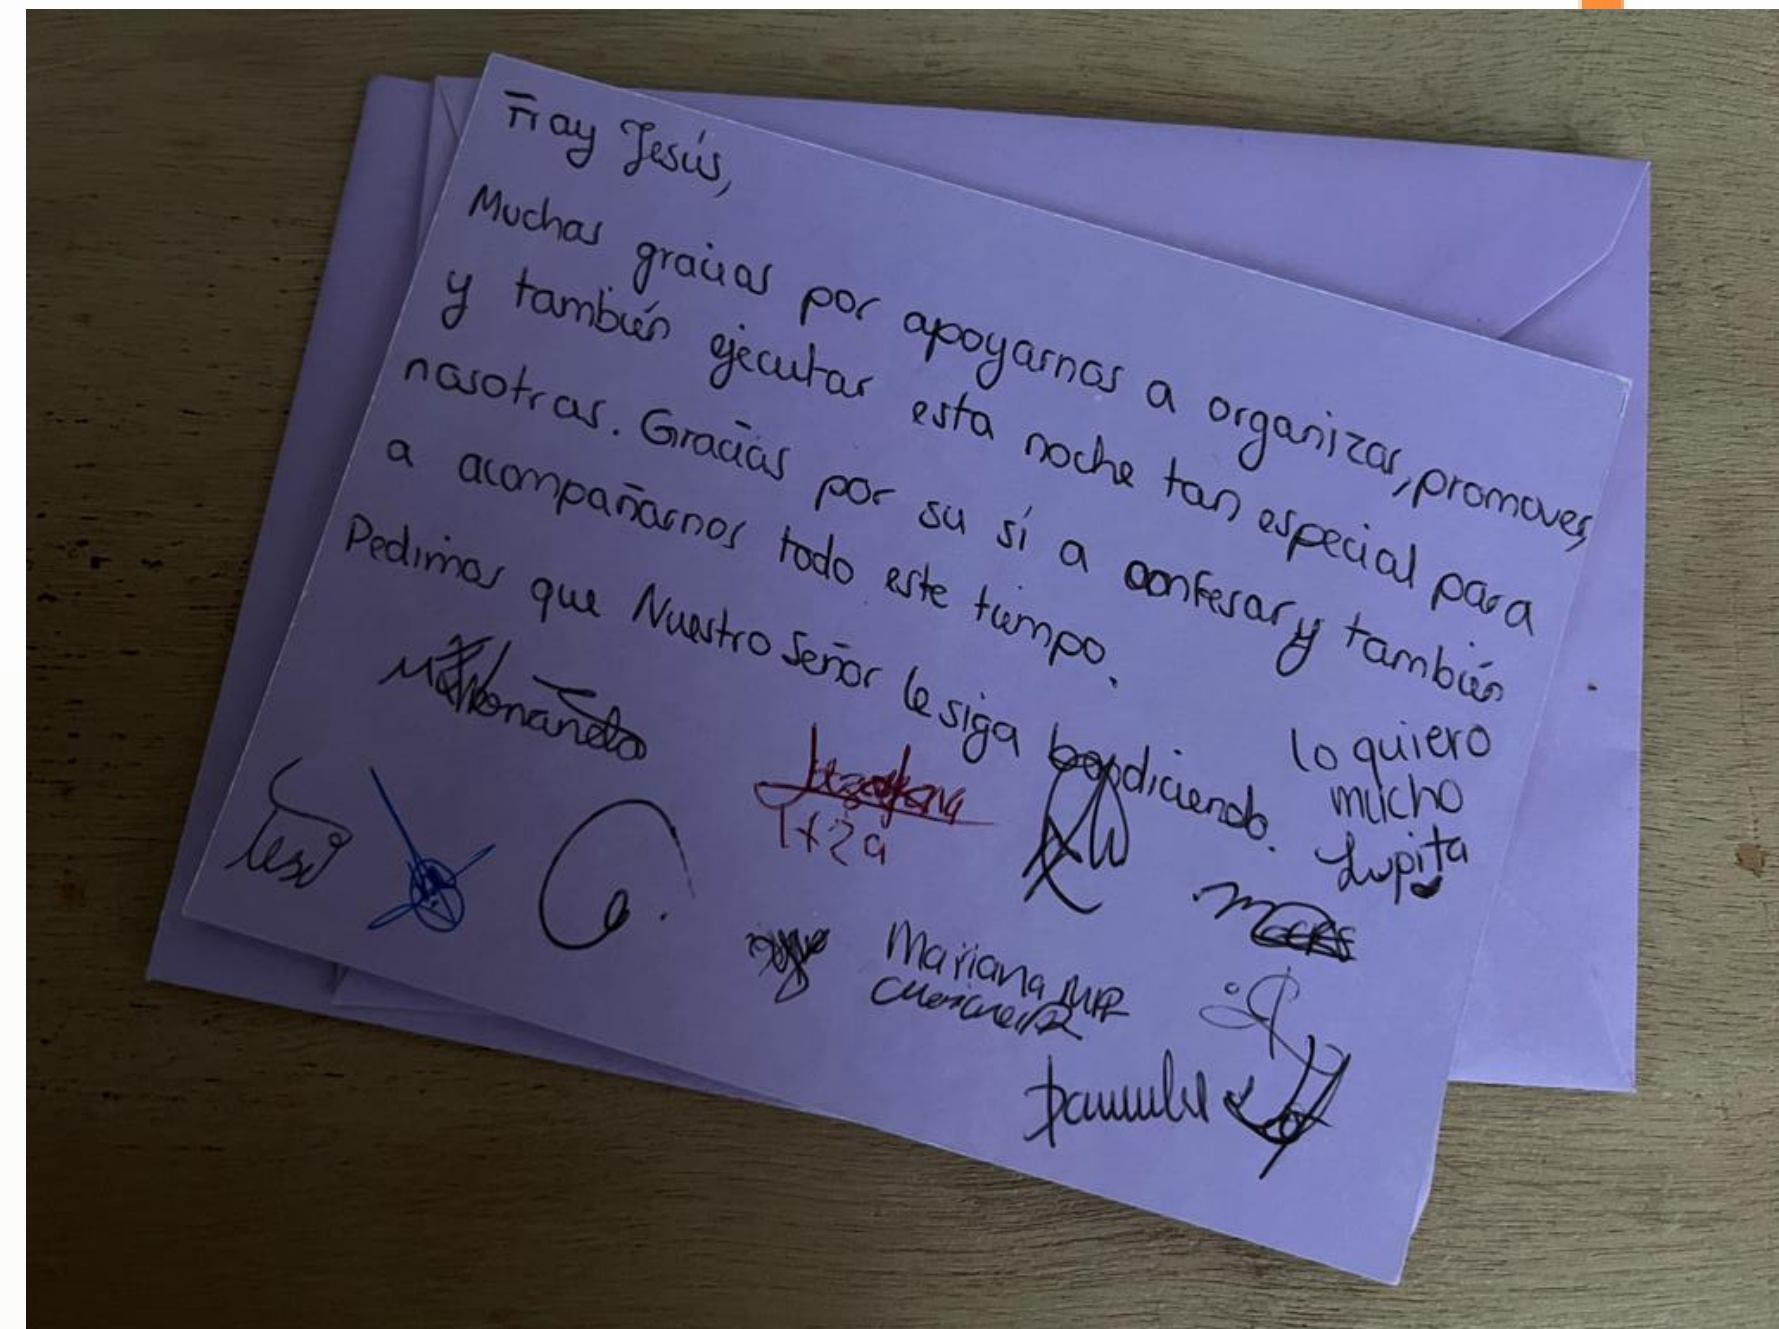 Fray Jesús,
Muchas gracias por apoyarnos a organizar, promover,
y también ejecutar esta noche tan especial para
nosotras. Gracias por su sí a confesar y también
a acompañarnos todo este tiempo.
Pedimos que Nuestro Señor le siga bendiciendo.
lo quiero
mucho
Lupita
Mariana